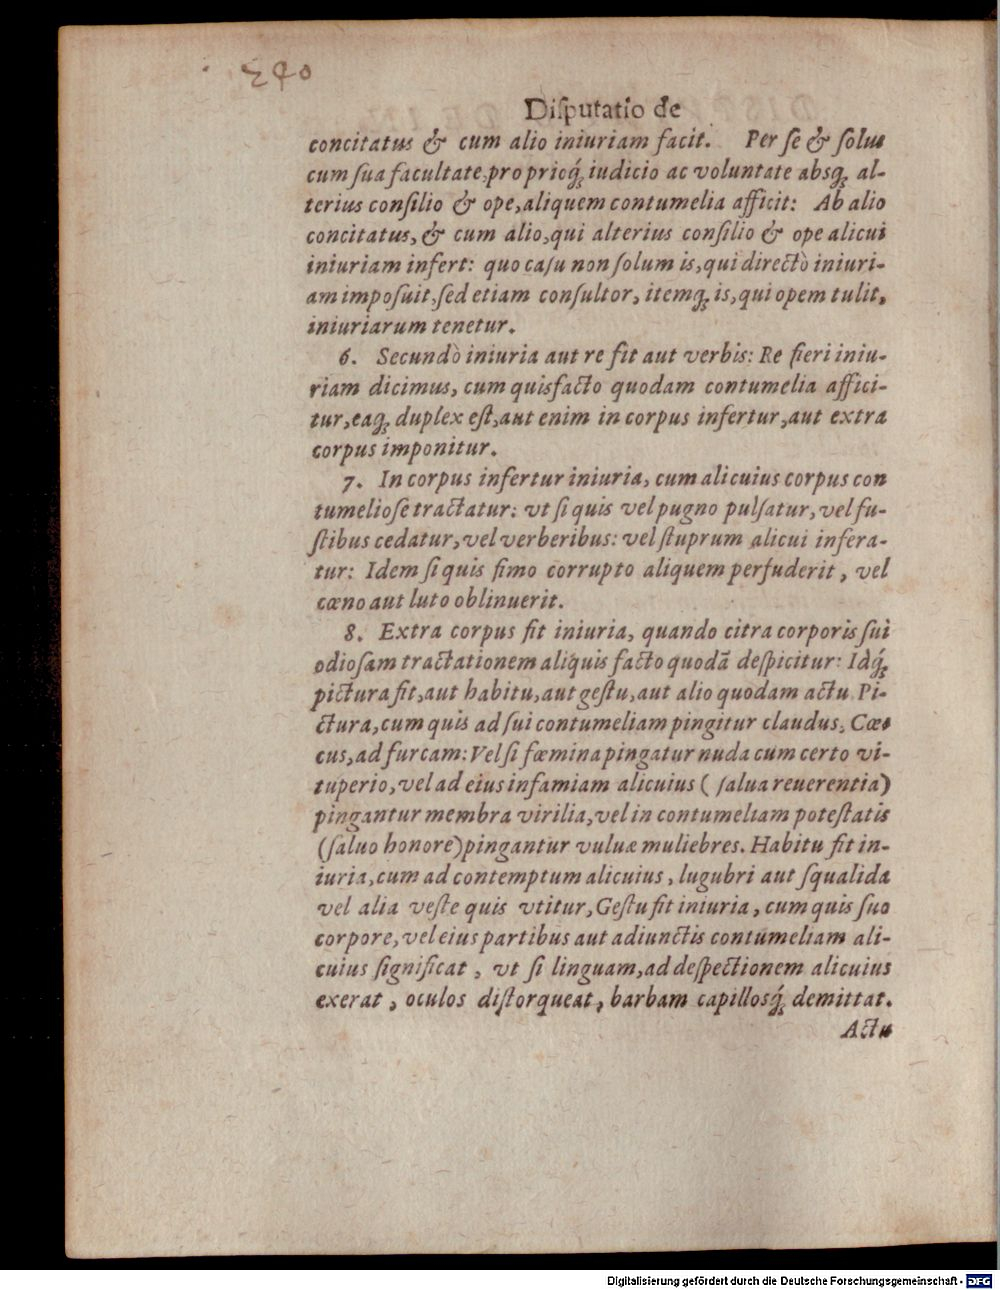 240
Diſputatio de
concitatus & cum alio iniuriam facit. Per ſe & ſolus
cum ſua facultate, propricq́; iudicio ac voluntate absq; al-
terius conſilio & ope, aliquem contumelia afficit: Ab alio
concitatus, & cum alio, qui alterius conſilio & ope alicui
iniuriam infert: quo caſu non ſolum is, qui directò iniuri-
am impoſuit, ſed etiam conſultor, itemq; is, qui opem tulit,
iniuriarum tenetur.
6. Secundò iniuria aut re fit aut verbis: Re fieri iniu-
riam dicimus, cum quis facto quodam contumelia affici-
tur, eaq; duplex eſt, aut enim in corpus infertur, aut extra
corpus imponitur.
7. In corpus infertur iniuria, cum alicuius corpus con
tumelioſe tractatur: vt ſi quis vel pugno pulſatur, vel fu-
ſtibus cedatur, vel verberibus: vel ſtuprum alicui infera-
tur: Idem ſi quis fimo corrupto aliquem perfuderit, vel
cœno aut luto oblinuerit.
8. Extra corpus fit iniuria, quando citra corporis ſui
odioſam tractationem aliquis facto quodã deſpicitur: Idq́;
pictura fit, aut habitu, aut geſtu, aut alio quodam actu. Pi-
ctura, cum quis ad ſui contumeliam pingitur claudus, Cœ-
cus, ad furcam: Vel ſi fœmina pingatur nuda cum certo vi-
tuperio, vel ad eius infamiam alicuius (ſalua reuerentia)
pingantur membra virilia, vel in contumeliam poteſtatis
(ſaluo honore) pingantur vuluæ muliebres. Habitu fit in-
iuria, cum ad contemptum alicuius, lugubri aut ſqualida
vel alia veſte quis vtitur, Geſtu fit iniuria, cum quis ſuo
corpore, vel eius partibus aut adiunctis contumeliam ali-
cuius ſignificat, vt ſi linguam, ad deſpectionem alicuius
exerat, oculos diſtorqueat, barbam capillosq́; demittat.
Actu
Digitalisierung gefördert durch die Deutsche Forschungsgemeinschaft - DFG